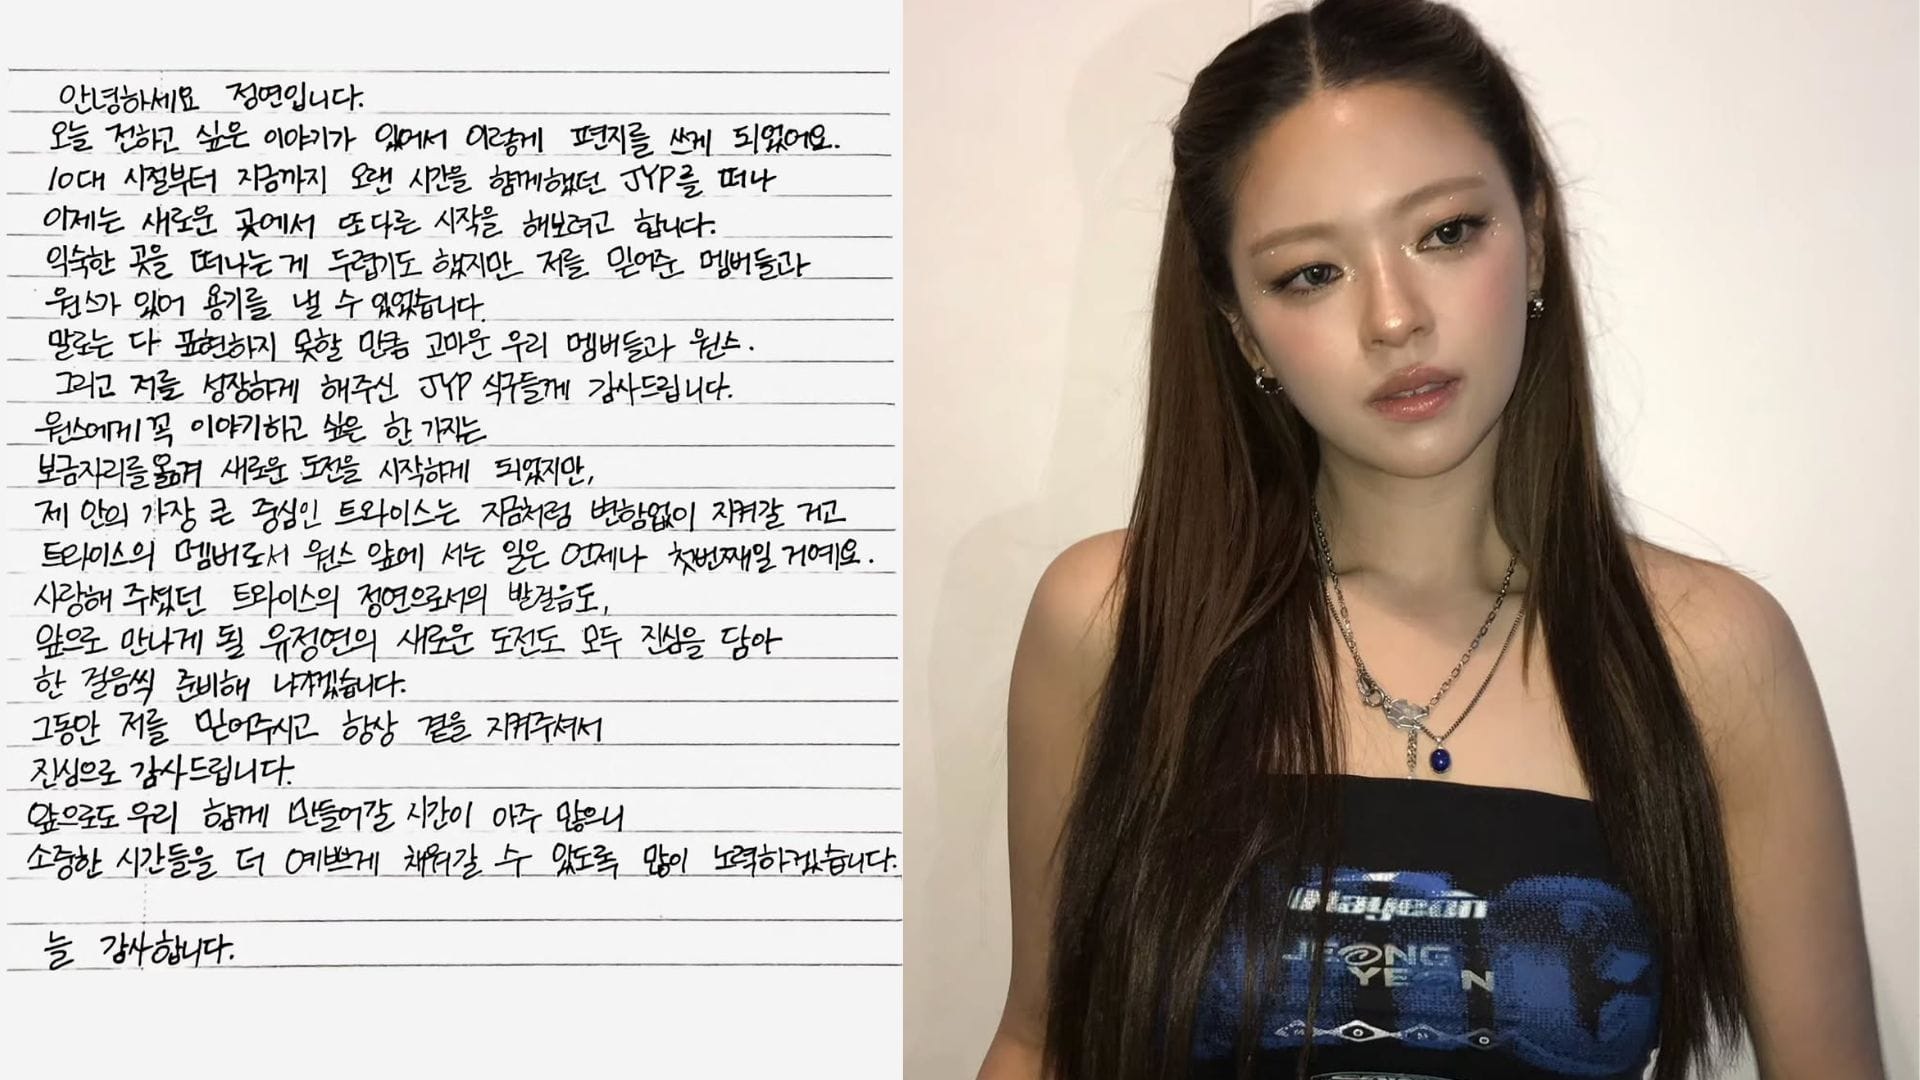 안녕하세요 정연입니다.
오늘 전하고 싶은 이야기가 있어서 이렇게 편지를 쓰게 되었어요.
10대 시절부터 지금까지 오랜 시간을 함께했던 JYP를 떠나
이제는 새로운 곳에서 또다른 시작을 해보려고 합니다.
익숙한 곳을 떠나는게 두렵기도 했지만 저를 믿어준 멤버들과
원스가 있어 용기를 낼 수 있었습니다.
말로는 다 표현하지 못할 만큼 고마운 우리 멤버들과 원스.
그리고 저를 성장하게 해주신 JYP 식구들께 감사드립니다.
원스에게 꼭 이야기하고 싶은 한 가지는
보금자리를 옮겨 새로운 도전을 시작하게 되었지만,
제 안의 가장 큰 중심인 트와이스는 지금처럼 변함없이 지켜갈 거고
트와이스의 멤버로서 원스 앞에 서는 일은 언제나 첫번째일 거예요.
사랑해 주셨던 트와이스의 정연으로서의 발걸음도,
앞으로 만나게 될 유정연의 새로운 도전도 모두 진심을 담아
한 걸음씩 준비해 나가겠습니다.
그동안 저를 믿어주시고 항상 곁을 지켜주셔서
진심으로 감사드립니다.
앞으로도 우리 함께 만들어갈 시간이 아주 많으니
소중한 시간들을 더 예쁘게 채워갈 수 있도록 많이 노력하겠습니다.
늘 감사합니다.
JEONG
YEON